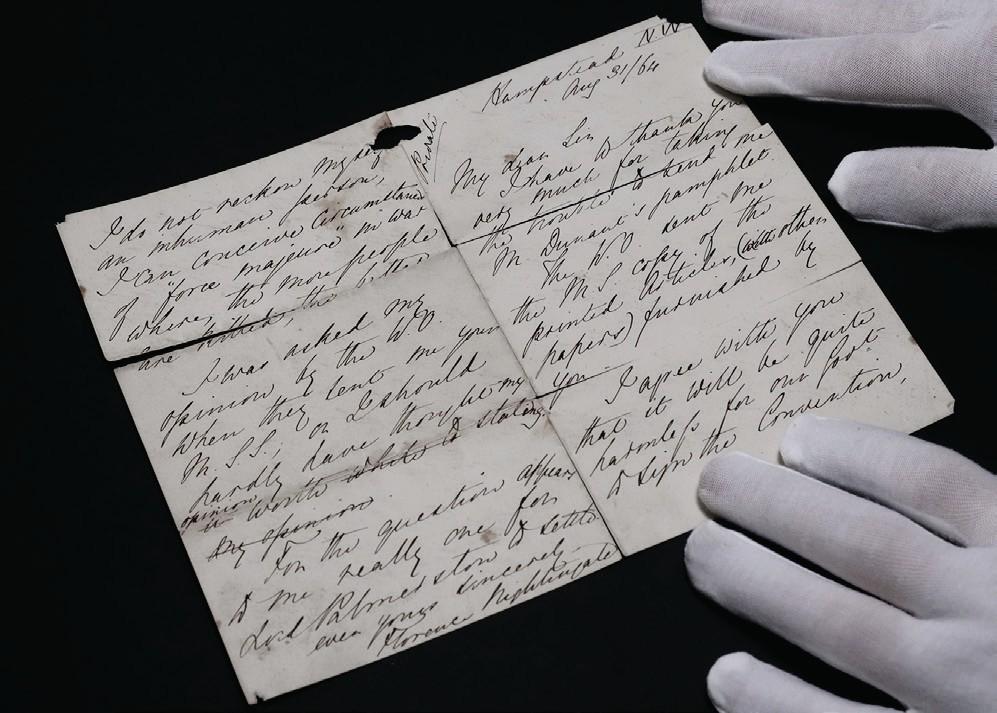 Hampstead NW
Aug 31/64
Private
My dear Sir
I have to thank you
very much for taking
the trouble to send me
M. Dunant's pamphlet.
The W.O. sent me
the M.S. copy of the
printed Articles, (with other
papers) furnished by
you.
I agree with you
that it will be quite
harmless for our Govt
to sign the Convention,
I do not reckon myself
an inhuman person,
I can conceive circumstances
of "force majeure" in war
where, the more people
are killed, the better
I was asked my
opinion by the W.O.
when they sent me your
M.S.S., or I should
hardly have thought my
opinion
it worth while to stating
my opinion.
For the question appears
to me really one for
Lord Palmerston to settle
ever yours sincerely
Florence Nightingale